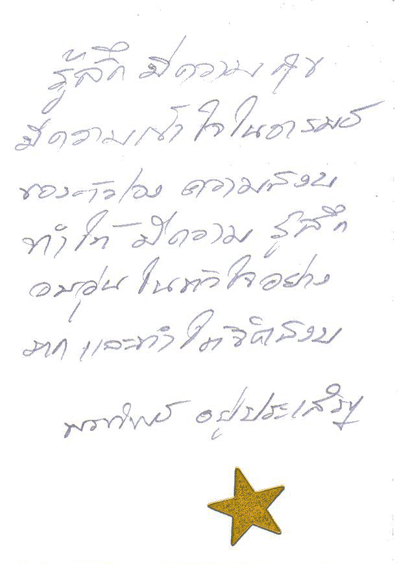 รู้สึก มีความ สุข
มีความเข้าใจในอารมณ์
ของตัวเอง ความสงบ
ทำให้ มีความ รู้สึก
อบอุ่นในหัวใจอย่าง
มาก และทำให้จิตสงบ
อยู่ประเสริฐ